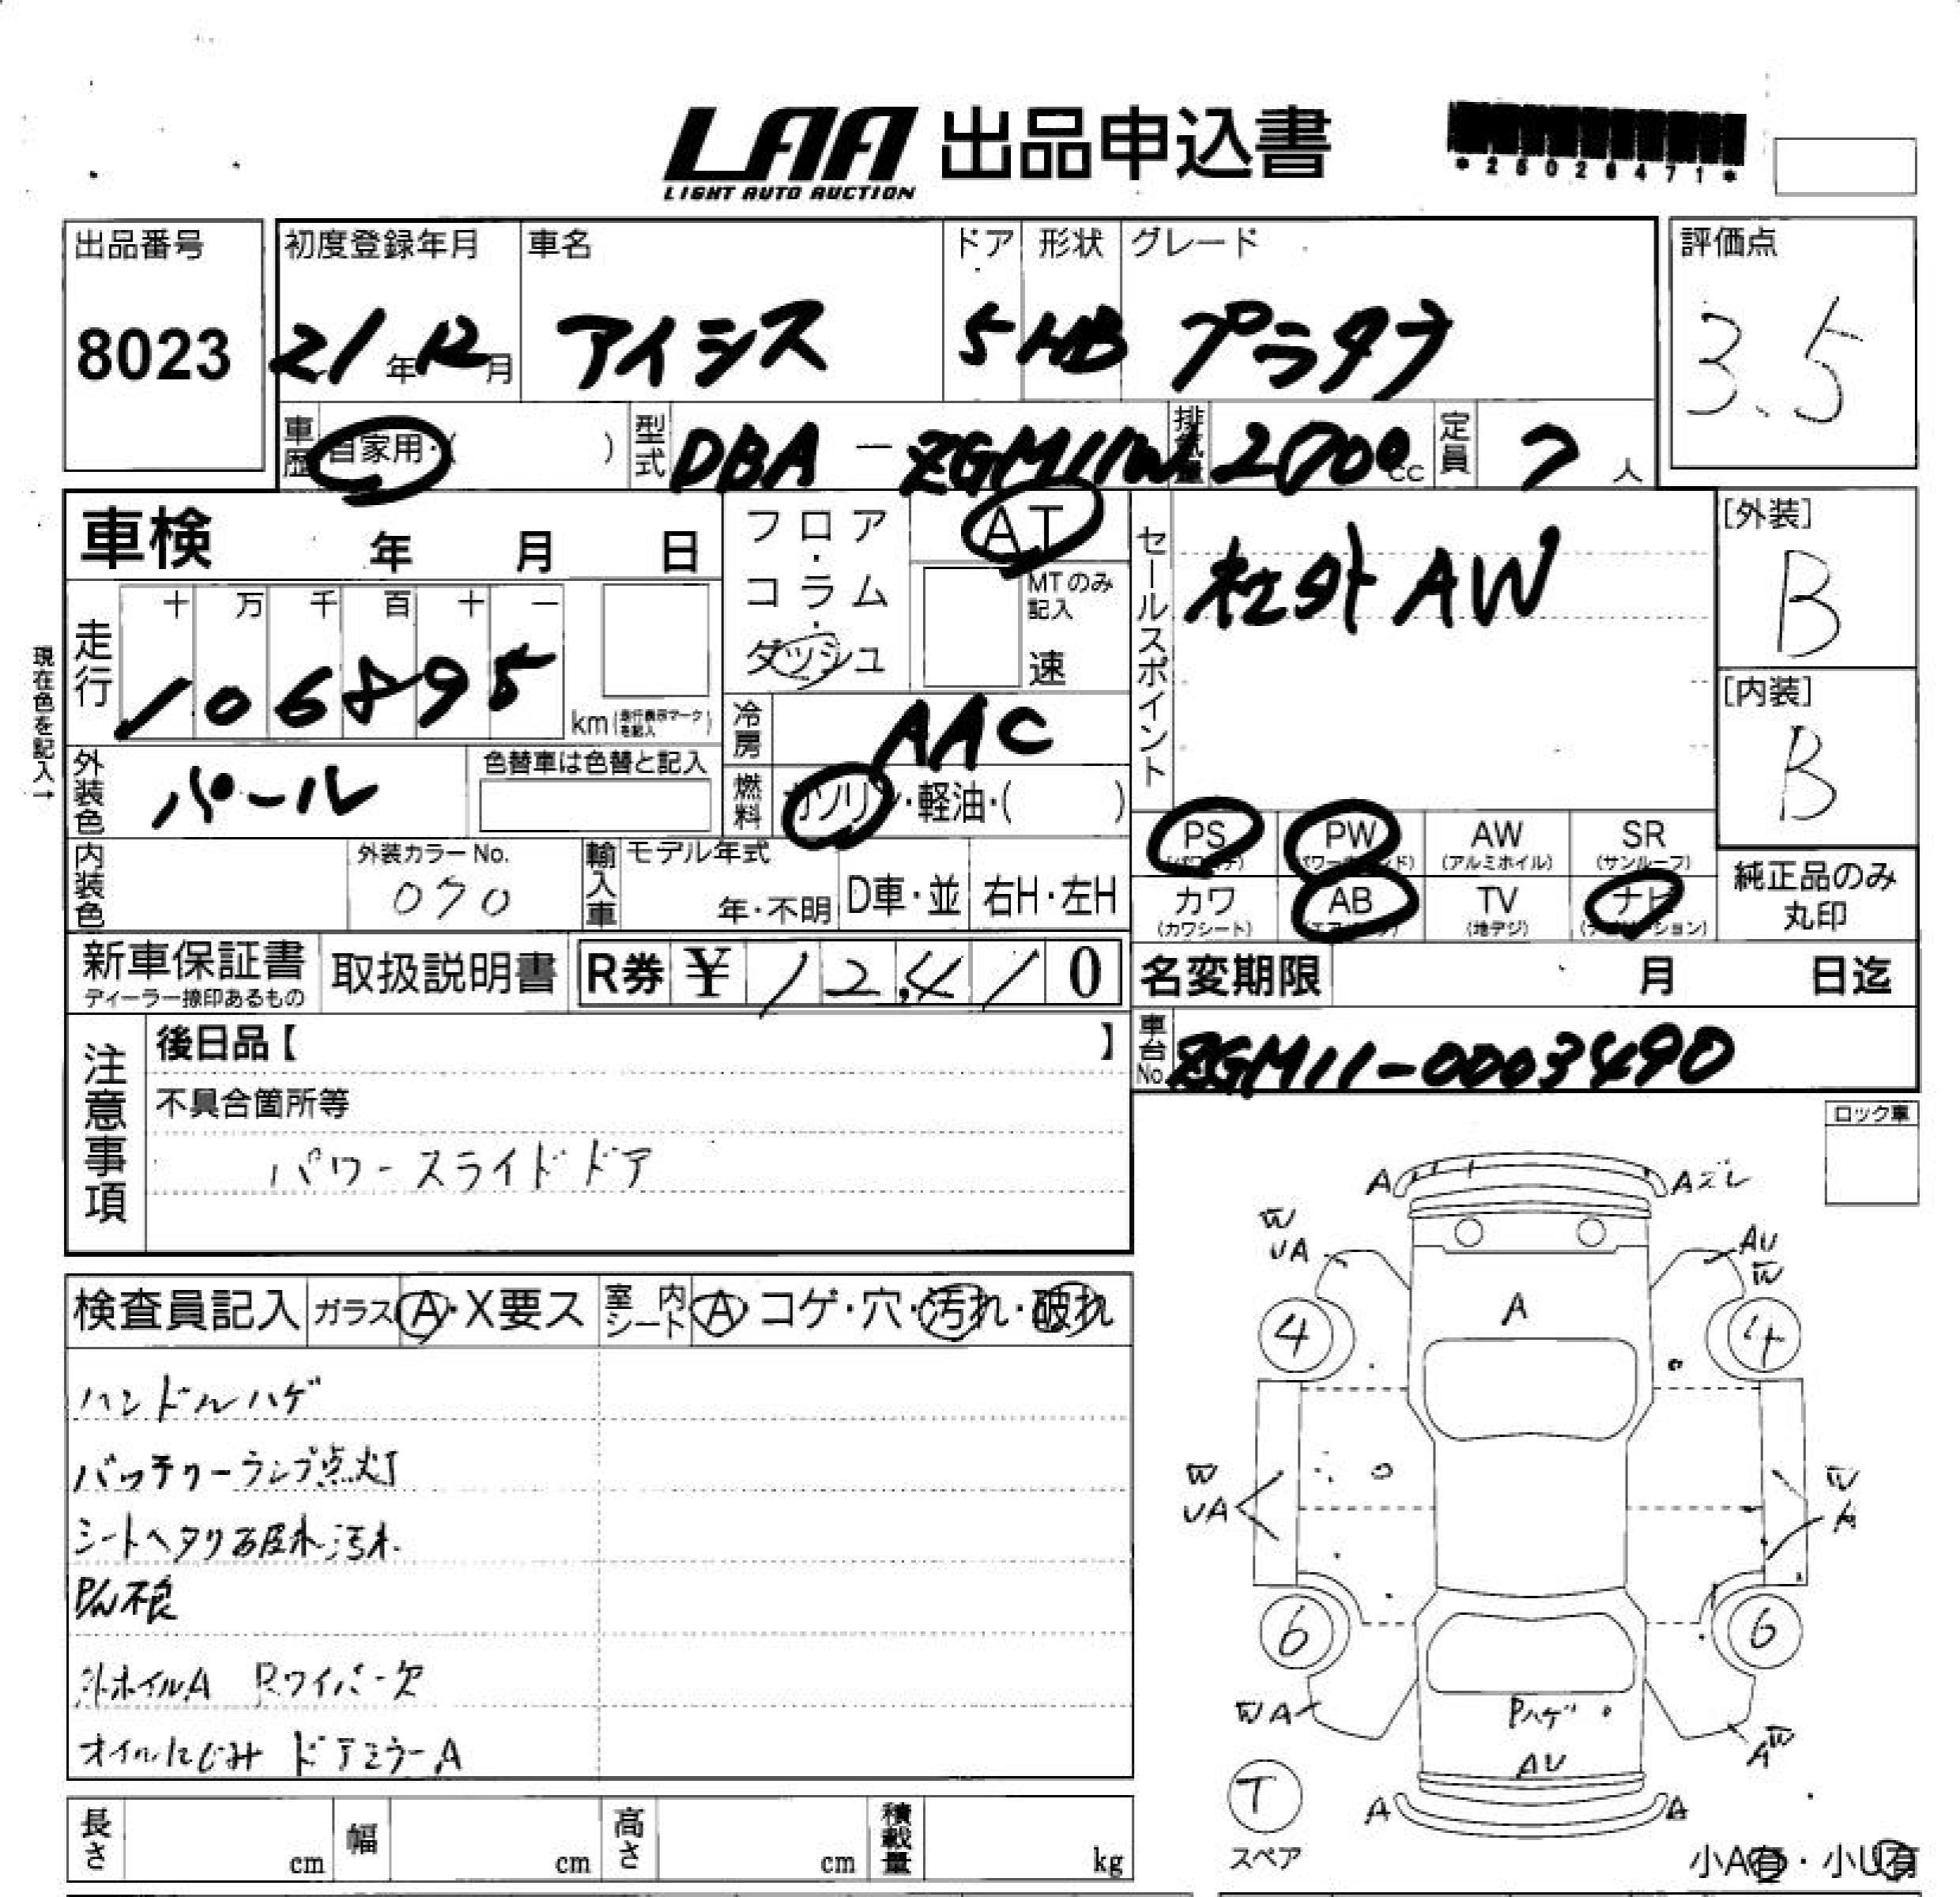 LAA 出品申込書
LIGHT AUTO AUCTION
*25026471*
出品番号
8023
初度登録年月
21年12月
車名
アイシス
ドア
5
形状
HB
グレード
プラタナ
評価点
3.5
車歴 自家用・( )
型式 DBA-ZGM11W
排気量 2000cc
定員 7人
車検 年 月 日
フロア・コラム・ダッシュ
AT
MTのみ記入
速
セールスポイント
社外AW
[外装]
B
[内装]
B
現在色を記入→
走行
十 万 千 百 十 一
106895
km(走行表示マークを記入)
冷房 AAC
外装色 パール
色替車は色替と記入
燃料 ガソリン・軽油・( )
PS (パワステ)
PW (パワーウィンド)
AW (アルミホイル)
SR (サンルーフ)
カワ (カワシート)
AB (エアバッグ)
TV (地デジ)
ナビ (ナビゲーション)
純正品のみ
丸印
内装色
外装カラーNo.
070
輸入車
モデル年式
年・不明
D車・並
右H・左H
新車保証書
ディーラー捺印あるもの
取扱説明書
R券 ¥12,410
名変期限 月 日迄
車台No. ZGM11-0003490
注意事項
後日品【 】
不具合箇所等
パワースライドドア
ロック車
検査員記入
ガラス A・X要ス
室内シート A・コゲ・穴・汚れ・破れ
ハンドルハゲ
バッテリーランプ点灯
シートヘタリ破れ汚れ
P/W不良
外ホイルA Rワイパー欠
オイルにじみ ドアミラーA
A
Aズレ
W
UA
AU
W
A
4
4
W
UA
W
A
6
6
WA
Pハゲ
AU
W
A
T
スペア
A
A
小A有・小U有
長さ cm
幅 cm
高さ cm
積載量 kg